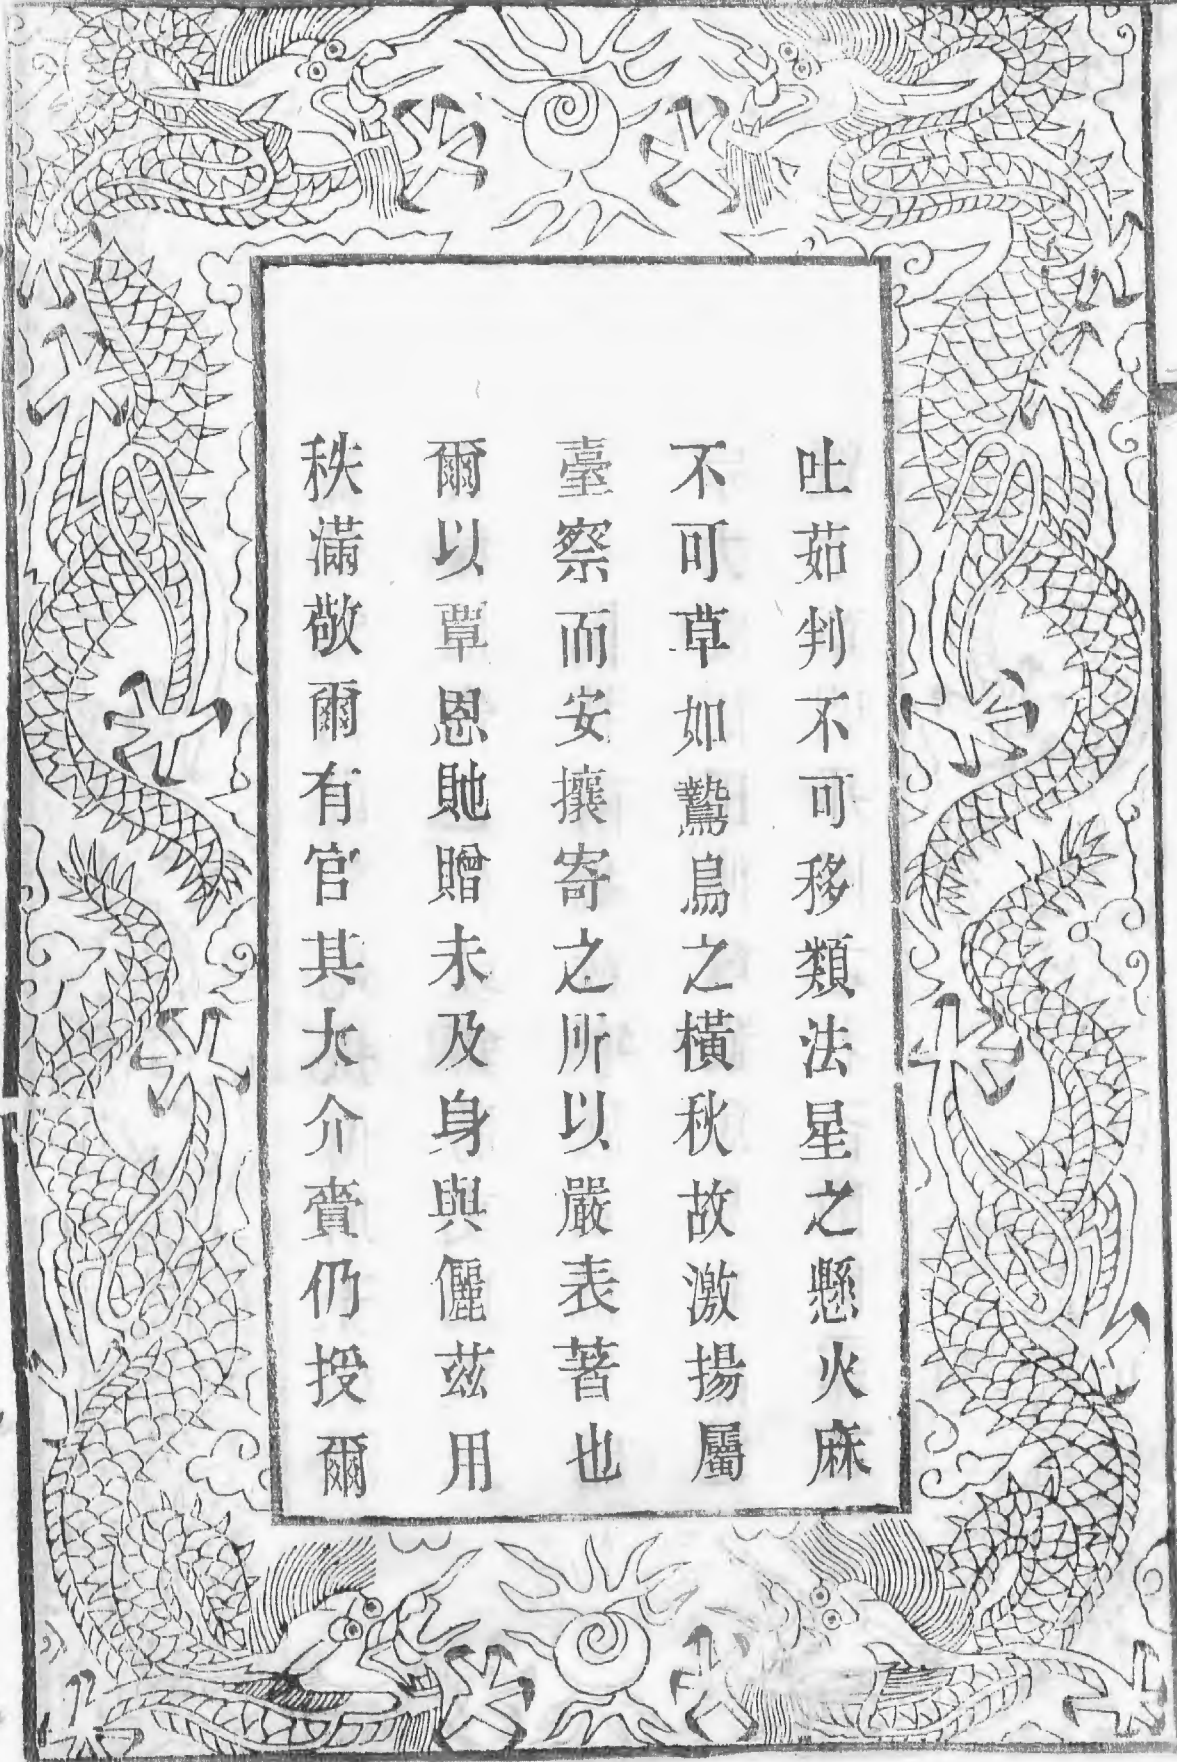 吐茹判不可移類法星之懸火麻
不可草如鷙鳥之橫秋故激揚屬
臺察而安攘寄之所以嚴表著也
爾以覃恩貤贈未及身與儷茲用
秩滿敬爾有官其大介賚仍授爾